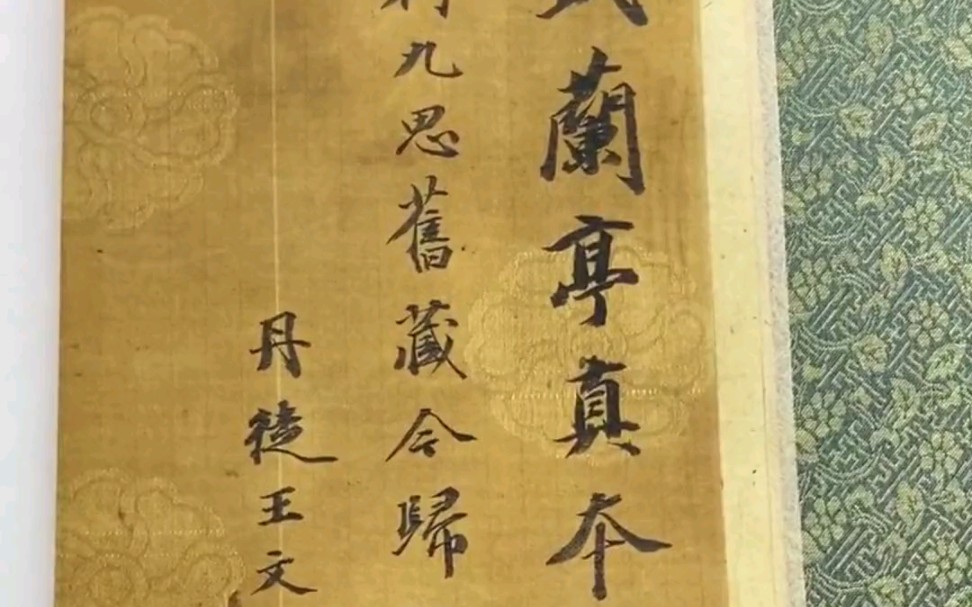 武蘭亭真本
柯九思舊藏今歸
丹徒王文